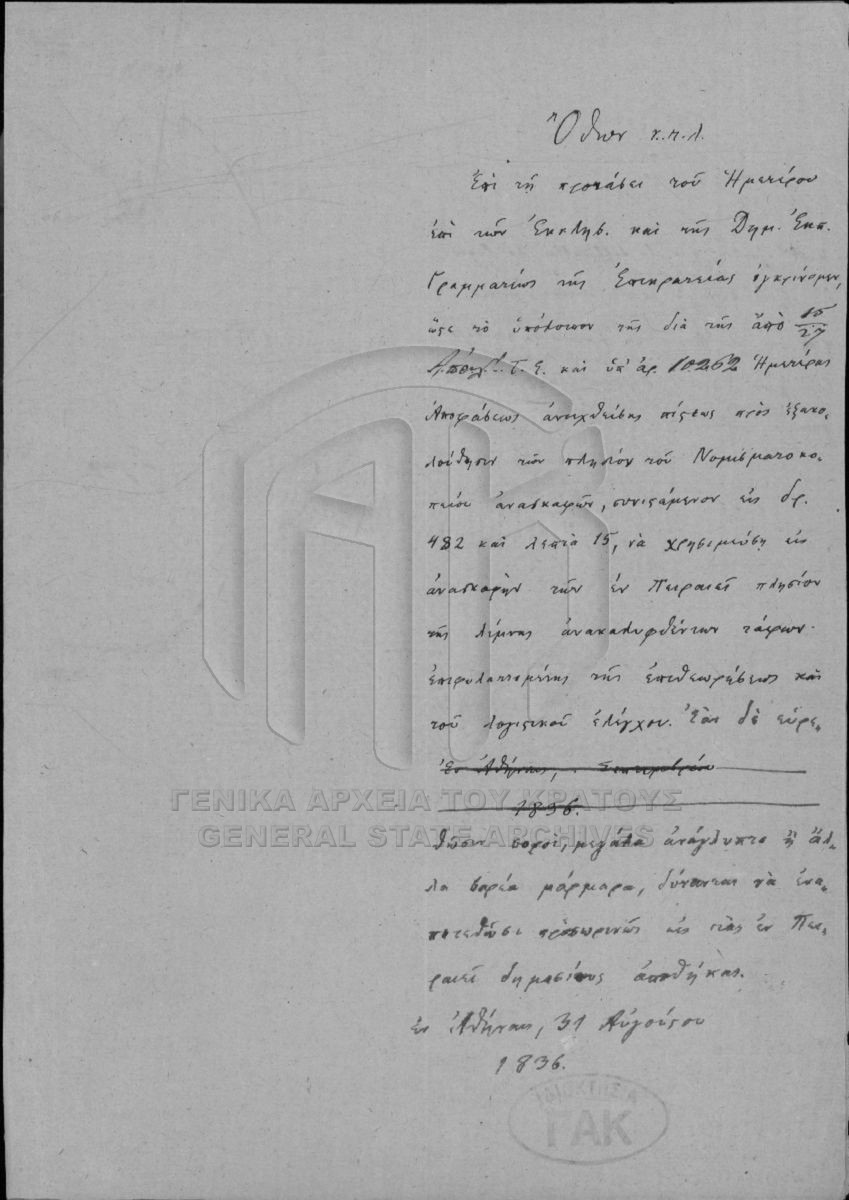 Ὄθων κ.τ.λ.
Ἐπὶ τῇ προτάσει τοῦ Ἡμετέρου
ἐπὶ τῶν Ἐκκλησ. καὶ τῆς Δημ. Ἐκπ.
Γραμματέως τῆς Ἐπικρατείας ἐγκρίνομεν,
ὥςε τὸ ὑπόλοιπον τῆς διὰ τῆς ἀπὸ 15/27
Ἀπριλ. τ. ἔ. καὶ ὑπ' ἀρ. 10262 Ἡμετέρας
Ἀποφάσεως ἀνοιχθείσης πίςεως πρὸς ἐξακο-
λούθησιν τῶν πλησίον τοῦ Νομισματοκο-
πείου ἀνασκαφῶν, συνιςάμενον εἰς δρ.
482 καὶ λεπτὰ 15, νὰ χρησιμεύσῃ εἰς
ἀνασκαφὴν τῶν ἐν Πειραιεῖ πλησίον
τῆς λίμνης ἀνακαλυφθέντων τάφων
ἐπιφυλαττομένης τῆς ἐπιθεωρήσεως καὶ
τοῦ λογιςικοῦ ἐλέγχου. Ἐὰν δὲ εὑρε-
Ἐν Ἀθήναις, Σεπτεμβρίου
1836.
θῶσιν σοροί, μεγάλα ἀνάγλυπτα ἢ ἄλ-
λα βαρέα μάρμαρα, δύνανται νὰ ἐνα-
ποτεθῶσι προσωρινῶς εἰς τὰς ἐν Πει-
ραιεῖ δημοσίους ἀποθήκας.
Ἐν Ἀθήναις, 31 Αὐγούςου
1836.
ΓΕΝΙΚΑ ΑΡΧΕΙΑ ΤΟΥ ΚΡΑΤΟΥΣ
GENERAL STATE ARCHIVES
ΓΑΚ